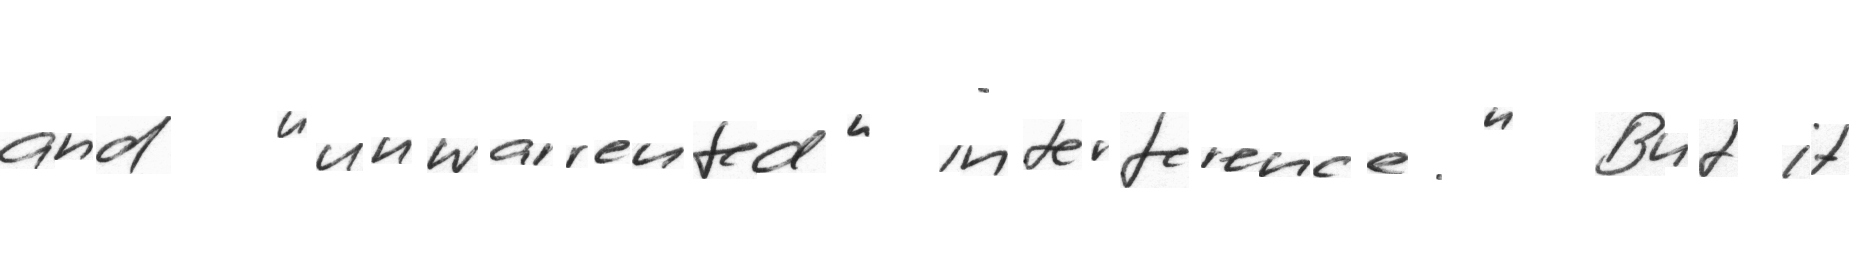 and "unwarrented" interference." But it